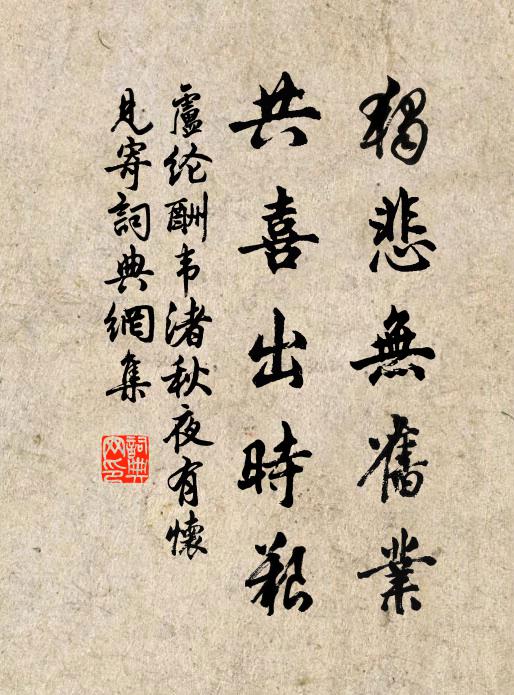 獨悲無舊業
共喜出時艱
盧纶酬韦渚秋夜有懷
見寄詞典網集
詞典网印